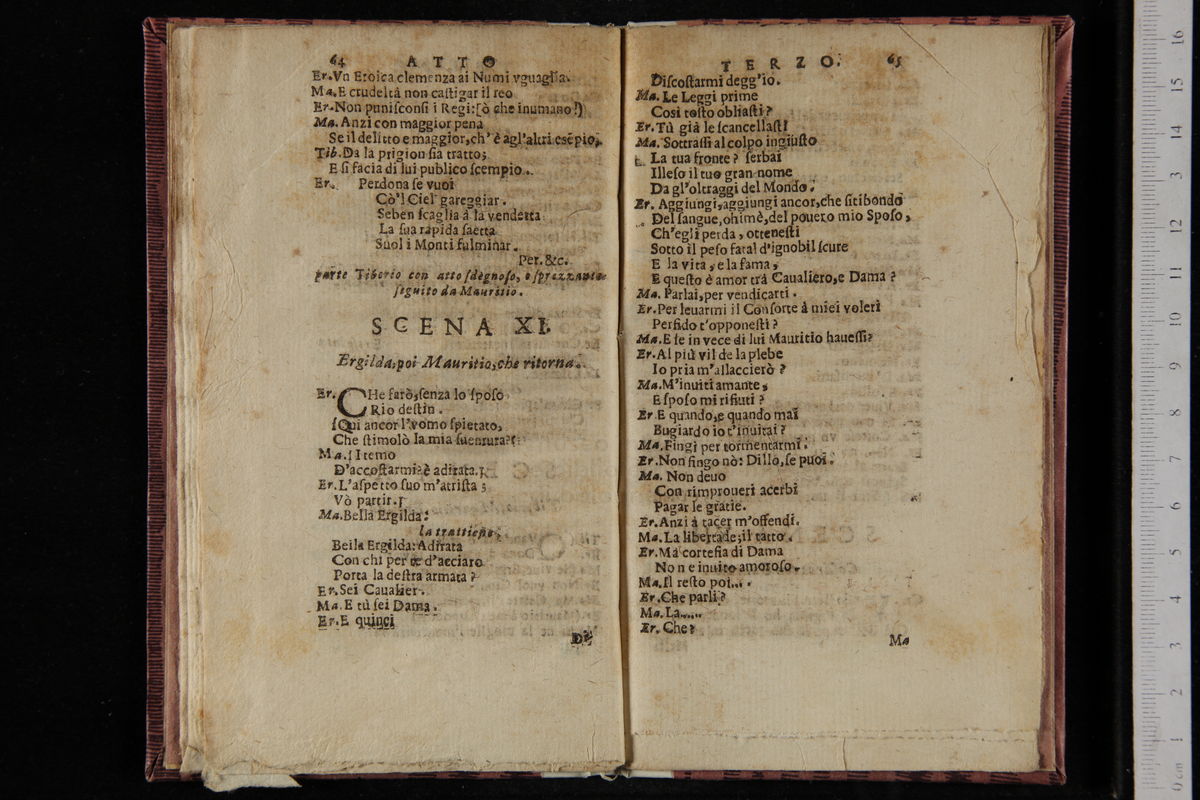 64 ATTO
Er. Vn Eroica clemenza ai Numi vguaglia.
Ma. E crudeltà non castigar il reo
Er. Non punisconsi i Regi: [ò che inumano!)
Ma. Anzi con maggior pena
Se il delitto e maggior, ch' è agl'altri esẽpio,
Tib. Da la prigion sia tratto;
E si facia di lui publico scempio.
Er. Perdona se vuoi
Cò'l Ciel gareggiar.
Seben scaglia à la vendetta
La sua rapida saetta
Suol i Monti fulminar.
Per. &c.
parte Tiberio con atto sdegnoso, e sprezzante
seguito da Mauritio.
SCENA XI.
Ergilda, poi Mauritio, che ritorna.
Er. CHe farò, senza lo sposo
Rio destin.
[Qui ancor l'vomo spietato,
Che stimolò la mia suentura?[
Ma. [Itemo
D'accostarmi: è adirata.]
Er. L'aspetto suo m'atrista;
Vò partir.]
Ma. Bella Ergilda:
la trattiene;
Bella Ergilda: Adirata
Con chi per te d'acciaro
Porta la destra armata?
Er. Sei Caualier.
Ma. E tù sei Dama.
Er. E quinci
Di-
TERZO. 65
Discostarmi degg'io.
Ma. Le Leggi prime
Cosi tosto obliasti?
Er. Tù già le scancellasti
Ma. Sottrassi al colpo ingiusto
La tua fronte? serbai
Illeso il tuo gran nome
Da gl'oltraggi del Mondo.
Er. Aggiungi, aggiungi ancor, che sitibondo
Del sangue, ohimè, del pouero mio Sposo,
Ch'egli perda, ottenesti
Sotto il peso fatal d'ignobil scure
E la vita, e la fama,
E questo è amor trà Caualiero, e Dama?
Ma. Parlai, per vendicarti.
Er. Per leuarmi il Consorte à miei voleri
Perfido t'opponesti?
Ma. E se in vece di lui Mauritio hauessi?
Er. Al più vil de la plebe
Io pria m'allaccierò?
Ma. M'inuiti amante,
E sposo mi rifiuti?
Er. E quando, e quando mai
Bugiardo io t'inuitai?
Ma. Fingi per tormentarmi.
Er. Non fingo nò: Dillo, se puoi.
Ma. Non deuo
Con rimproueri acerbi
Pagar le gratie.
Er. Anzi à tacer m'offendi.
Ma. La libertade; il tatto.
Er. Mà cortesia di Dama
Non e inuito amoroso.
Ma. Il resto poi....
Er. Che parli?
Ma. La.....
Er. Che?
Ma